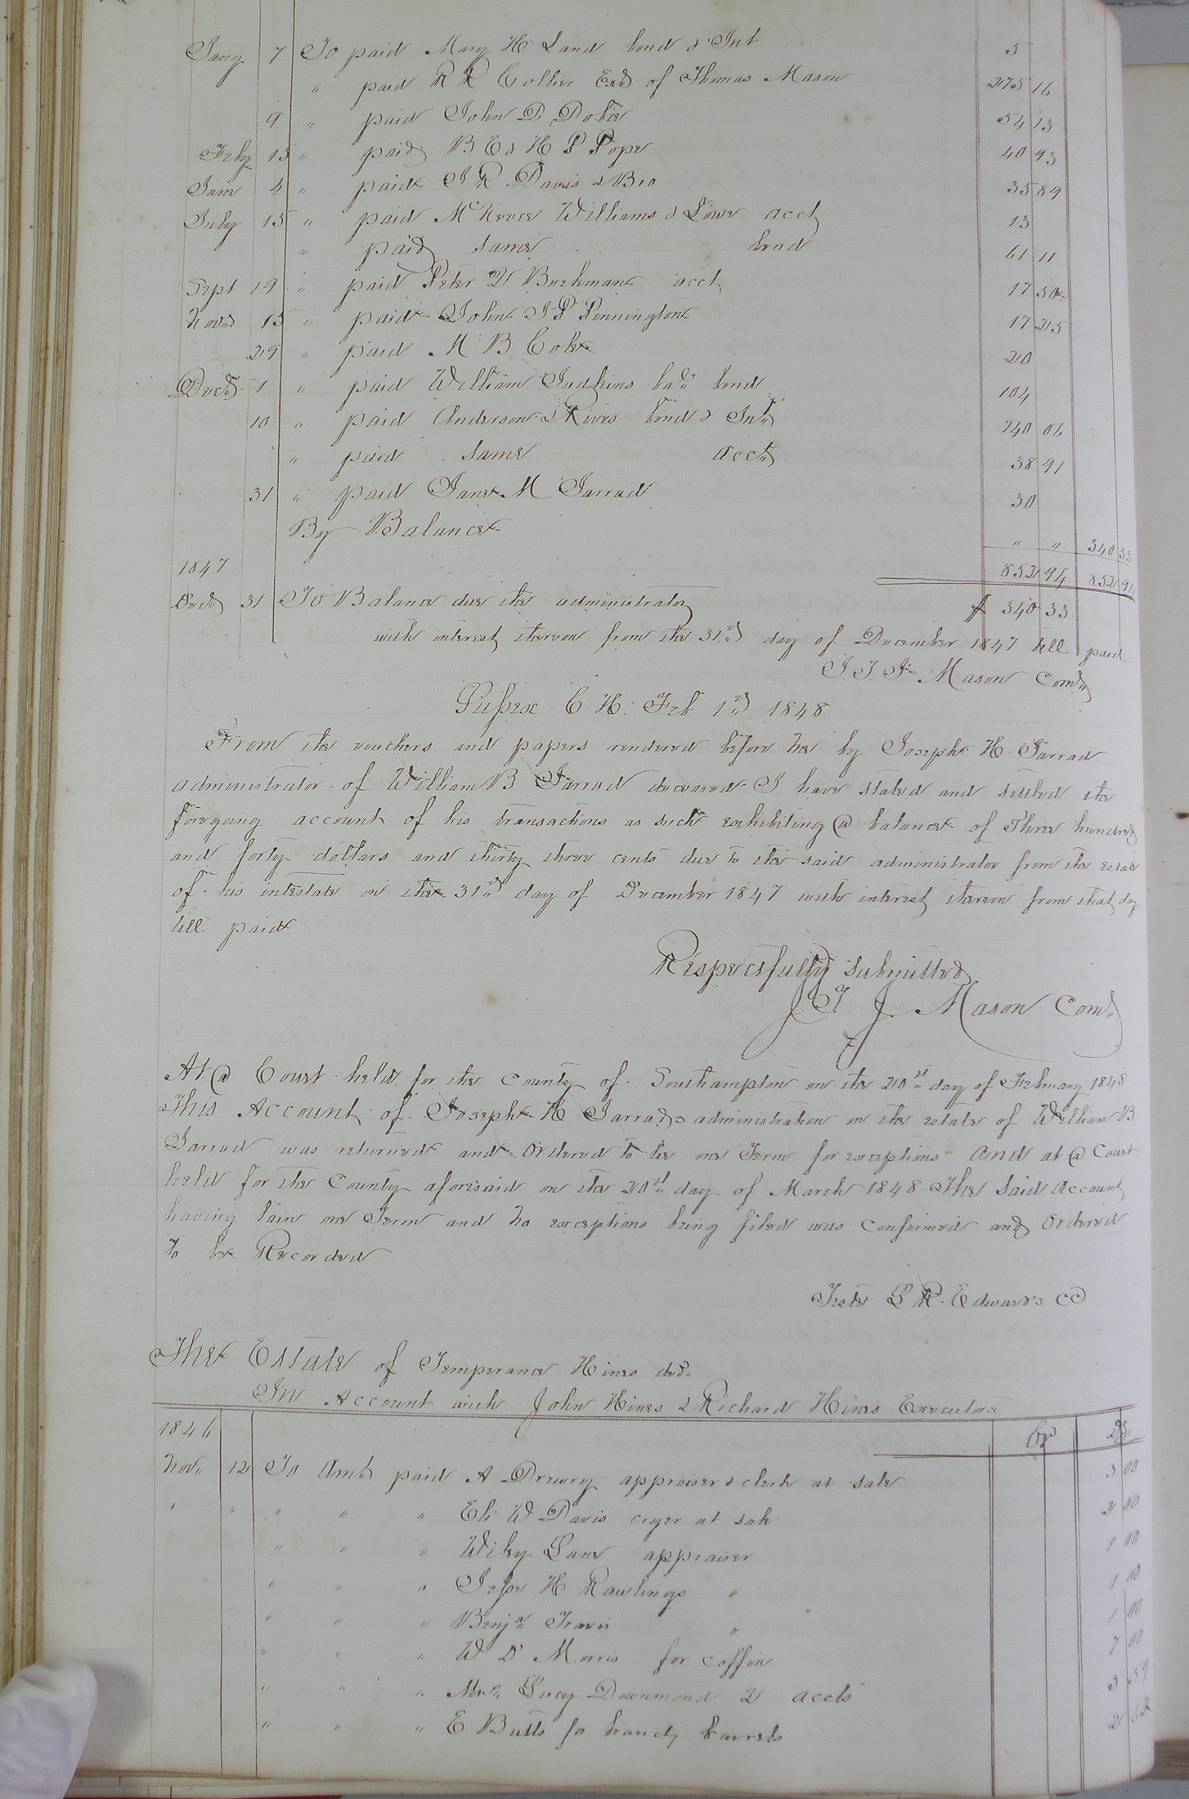 Jany 7 To paid Mary H Land bond & Int 5
" paid R R Collier Exd of Thomas Mason 275 16
9 " paid John D 54 13
Feby 13 " paid B E & H P Pope 40 93
June 4 " paid J R Davis & Bro 35 89
July 15 " paid Williams & Lowe acct 13
" paid same bond 61 11
Sept 19 " paid Peter acct 17 50
Novr 15 " paid John J P Pennington 17 25
29 " paid M B 20
Decr 1 " paid William Judkins bal bond 104
10 " paid Anderson & Rives bond & Int 140 06
" paid same acct 38 91
31 " paid Jane M Jarrad 30
By Balance " " 340 33
1847 852 94 852 94
Decr 31 To Balance due the administrator $ 340 33
with interest thereon from the 31st day of December 1847 till paid
Mason Comr
Sussex C H. Feb 1st 1848
From the vouchers and papers rendered before me by Joseph H Jarrad
administrator of William B Jarrad deceased I have stated and settled the
foregoing account of his transactions as such exhibiting @ balance of Three hundred
and forty dollars and thirty three cents due to the said administrator from the estate
of his intestate on the 31st day of December 1847 with interest thereon from that day
till paid
Respectfully Submitted
Mason Comr
At @ Court held for the County of Southampton on the 20th day of February 1848
This Account of Joseph H Jarrads administration on the estate of William B
Jarrad was returned and Ordered to lie one Term for exceptions And at @ Court
held for the County aforesaid on the 20th day of March 1848 The Said Account
having lain one Term and no exceptions being filed was Confirmed and Ordered
to be Recorded
Teste L R Edwards CC
The Estate of Temperance Hines decd.
In Account with John Hines & Richard Hines Executors
1846 Cr Dr
Novr 12 To Amt paid A Drewry appraiser & clerk at sale 3 00
" " " " " Eli W Davis cryer at sale 2 00
" " " Wiley Lane appraiser 1 00
" " " Jesse H Rawlings " 1 00
" " " Benja Travis " 1 00
" " " W D Morris for coffin 7 00
" " " Mrs. Lucy 2 accts 3 59
" " " E Butts for brandy barrels 2